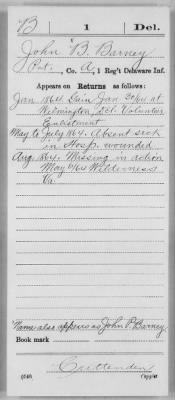 B 1 Del.
John B. Barney
Pvt., Co. A, 1 Reg't Delaware Inf.
Appears on Returns as follows:
Jan. 1864. Gain Jan 29/64 at
Wilmington, Del. Volunteer
Enlistment
May to July 1864. Absent sick
in Hosp. wounded
Aug. 1864. Missing in action
May 6/64 Wilderness
Va.
Name also appears as John P. Barney
Book mark
Crittenden
(546) Copyist.